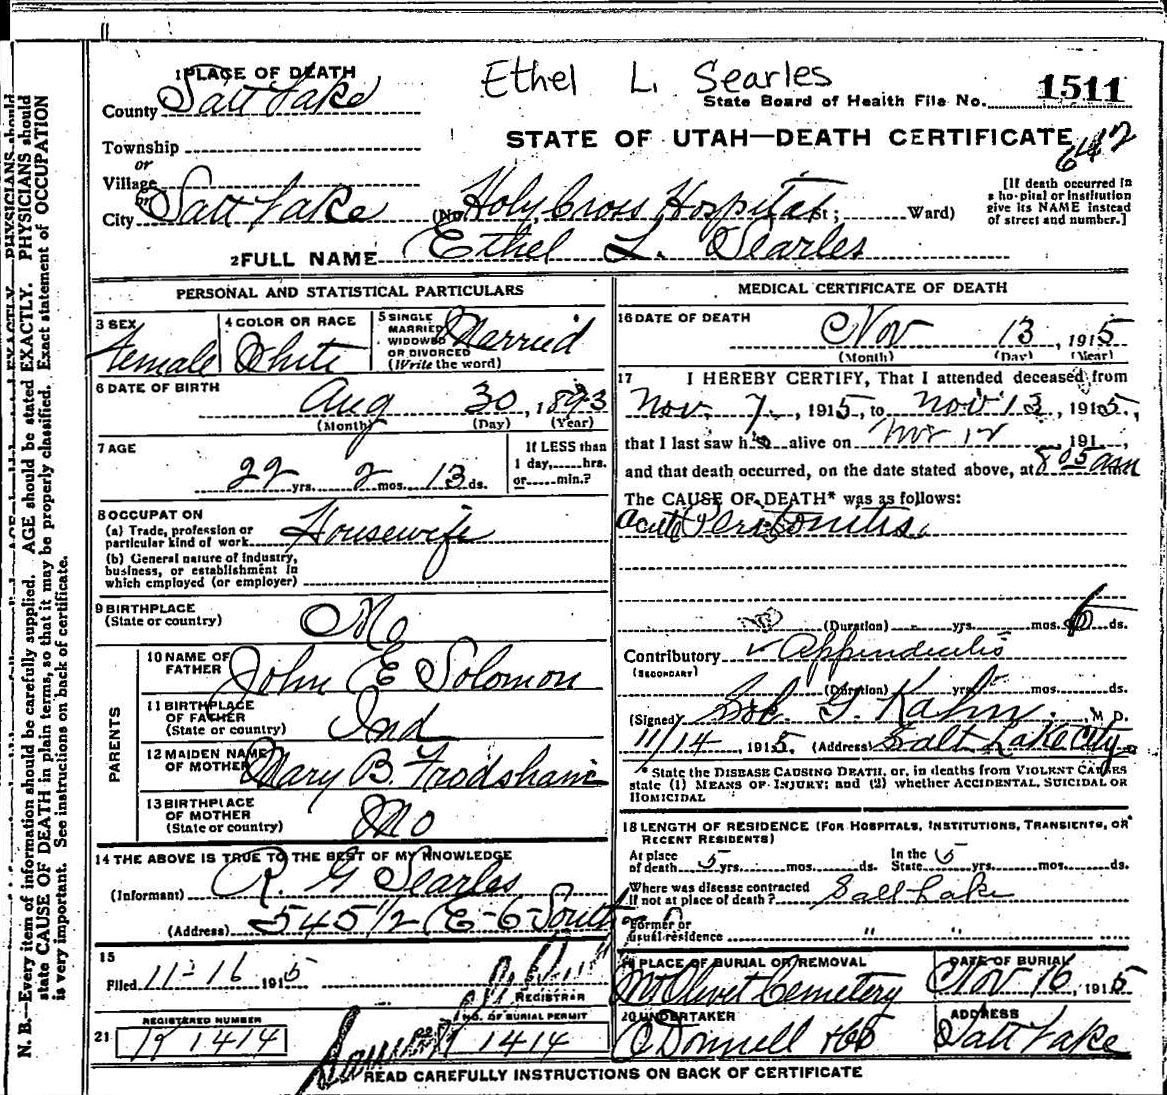 Ethel L. Searles
1 PLACE OF DEATH
County Salt Lake
State Board of Health File No. 1511
STATE OF UTAH—DEATH CERTIFICATE
Township
or
Village
or
City Salt Lake (No. Holy Cross Hospital St; Ward)
[If death occurred in
a hospital or institution
give its NAME instead
of street and number.]
2 FULL NAME Ethel L. Searles
PERSONAL AND STATISTICAL PARTICULARS
3 SEX
Female
4 COLOR OR RACE
White
5 SINGLE
MARRIED
WIDOWED
OR DIVORCED
(Write the word)
Married
6 DATE OF BIRTH
Aug 30, 1893
(Month) (Day) (Year)
7 AGE
22 yrs. 2 mos. 13 ds.
If LESS than
1 day,......hrs.
or......min.?
8 OCCUPATON
(a) Trade, profession or
particular kind of work Housewife
(b) General nature of industry,
business, or establishment in
which employed (or employer)
9 BIRTHPLACE
(State or country)
Mo
PARENTS
10 NAME OF
FATHER
John E Solomon
11 BIRTHPLACE
OF FATHER
(State or country)
Ind
12 MAIDEN NAME
OF MOTHER
Mary B. Frodsham
13 BIRTHPLACE
OF MOTHER
(State or country)
Mo
14 THE ABOVE IS TRUE TO THE BEST OF MY KNOWLEDGE
(Informant) R. G Searles
(Address) 545 1/2 E-6-South
15
Filed 11-16 1915
REGISTRAR
21
REGISTERED NUMBER
1414
22
NO. OF BURIAL PERMIT
1414
MEDICAL CERTIFICATE OF DEATH
16 DATE OF DEATH
Nov 13, 1915
(Month) (Day) (Year)
17 I HEREBY CERTIFY, That I attended deceased from
Nov. 7, 1915, to Nov 13, 1915,
that I last saw h alive on Nov 12, 191 ,
and that death occurred, on the date stated above, at 8 05 am
The CAUSE OF DEATH* was as follows:
Acute Peritonitis.
(Duration) yrs. mos. 6 ds.
Contributory Appendicitis
(SECONDARY)
(Duration) yrs. mos. ds.
(Signed) G. Kahn. M D.
11/14, 1915. (Address) Salt Lake City
* State the DISEASE CAUSING DEATH, or, in deaths from VIOLENT CAUSES
state (1) MEANS OF INJURY; and (2) whether ACCIDENTAL, SUICIDAL OR
HOMICIDAL
18 LENGTH OF RESIDENCE (FOR HOSPITALS, INSTITUTIONS, TRANSIENTS, OR
RECENT RESIDENTS)
At place
of death 5 yrs. mos. ds.
In the
State 5 yrs. mos. ds.
Where was disease contracted
If not at place of death? Salt Lake
Former or
usual residence " "
19 PLACE OF BURIAL OR REMOVAL
Mt Olivet Cemetery
DATE OF BURIAL
Nov 16, 1915
20 UNDERTAKER
O'Donnell & Co
ADDRESS
Salt Lake
READ CAREFULLY INSTRUCTIONS ON BACK OF CERTIFICATE
N. B.—Every item of information should be carefully supplied. AGE should be stated EXACTLY. PHYSICIANS should
state CAUSE OF DEATH in plain terms, so that it may be properly classified. Exact statement of OCCUPATION
is very important. See instructions on back of certificate.